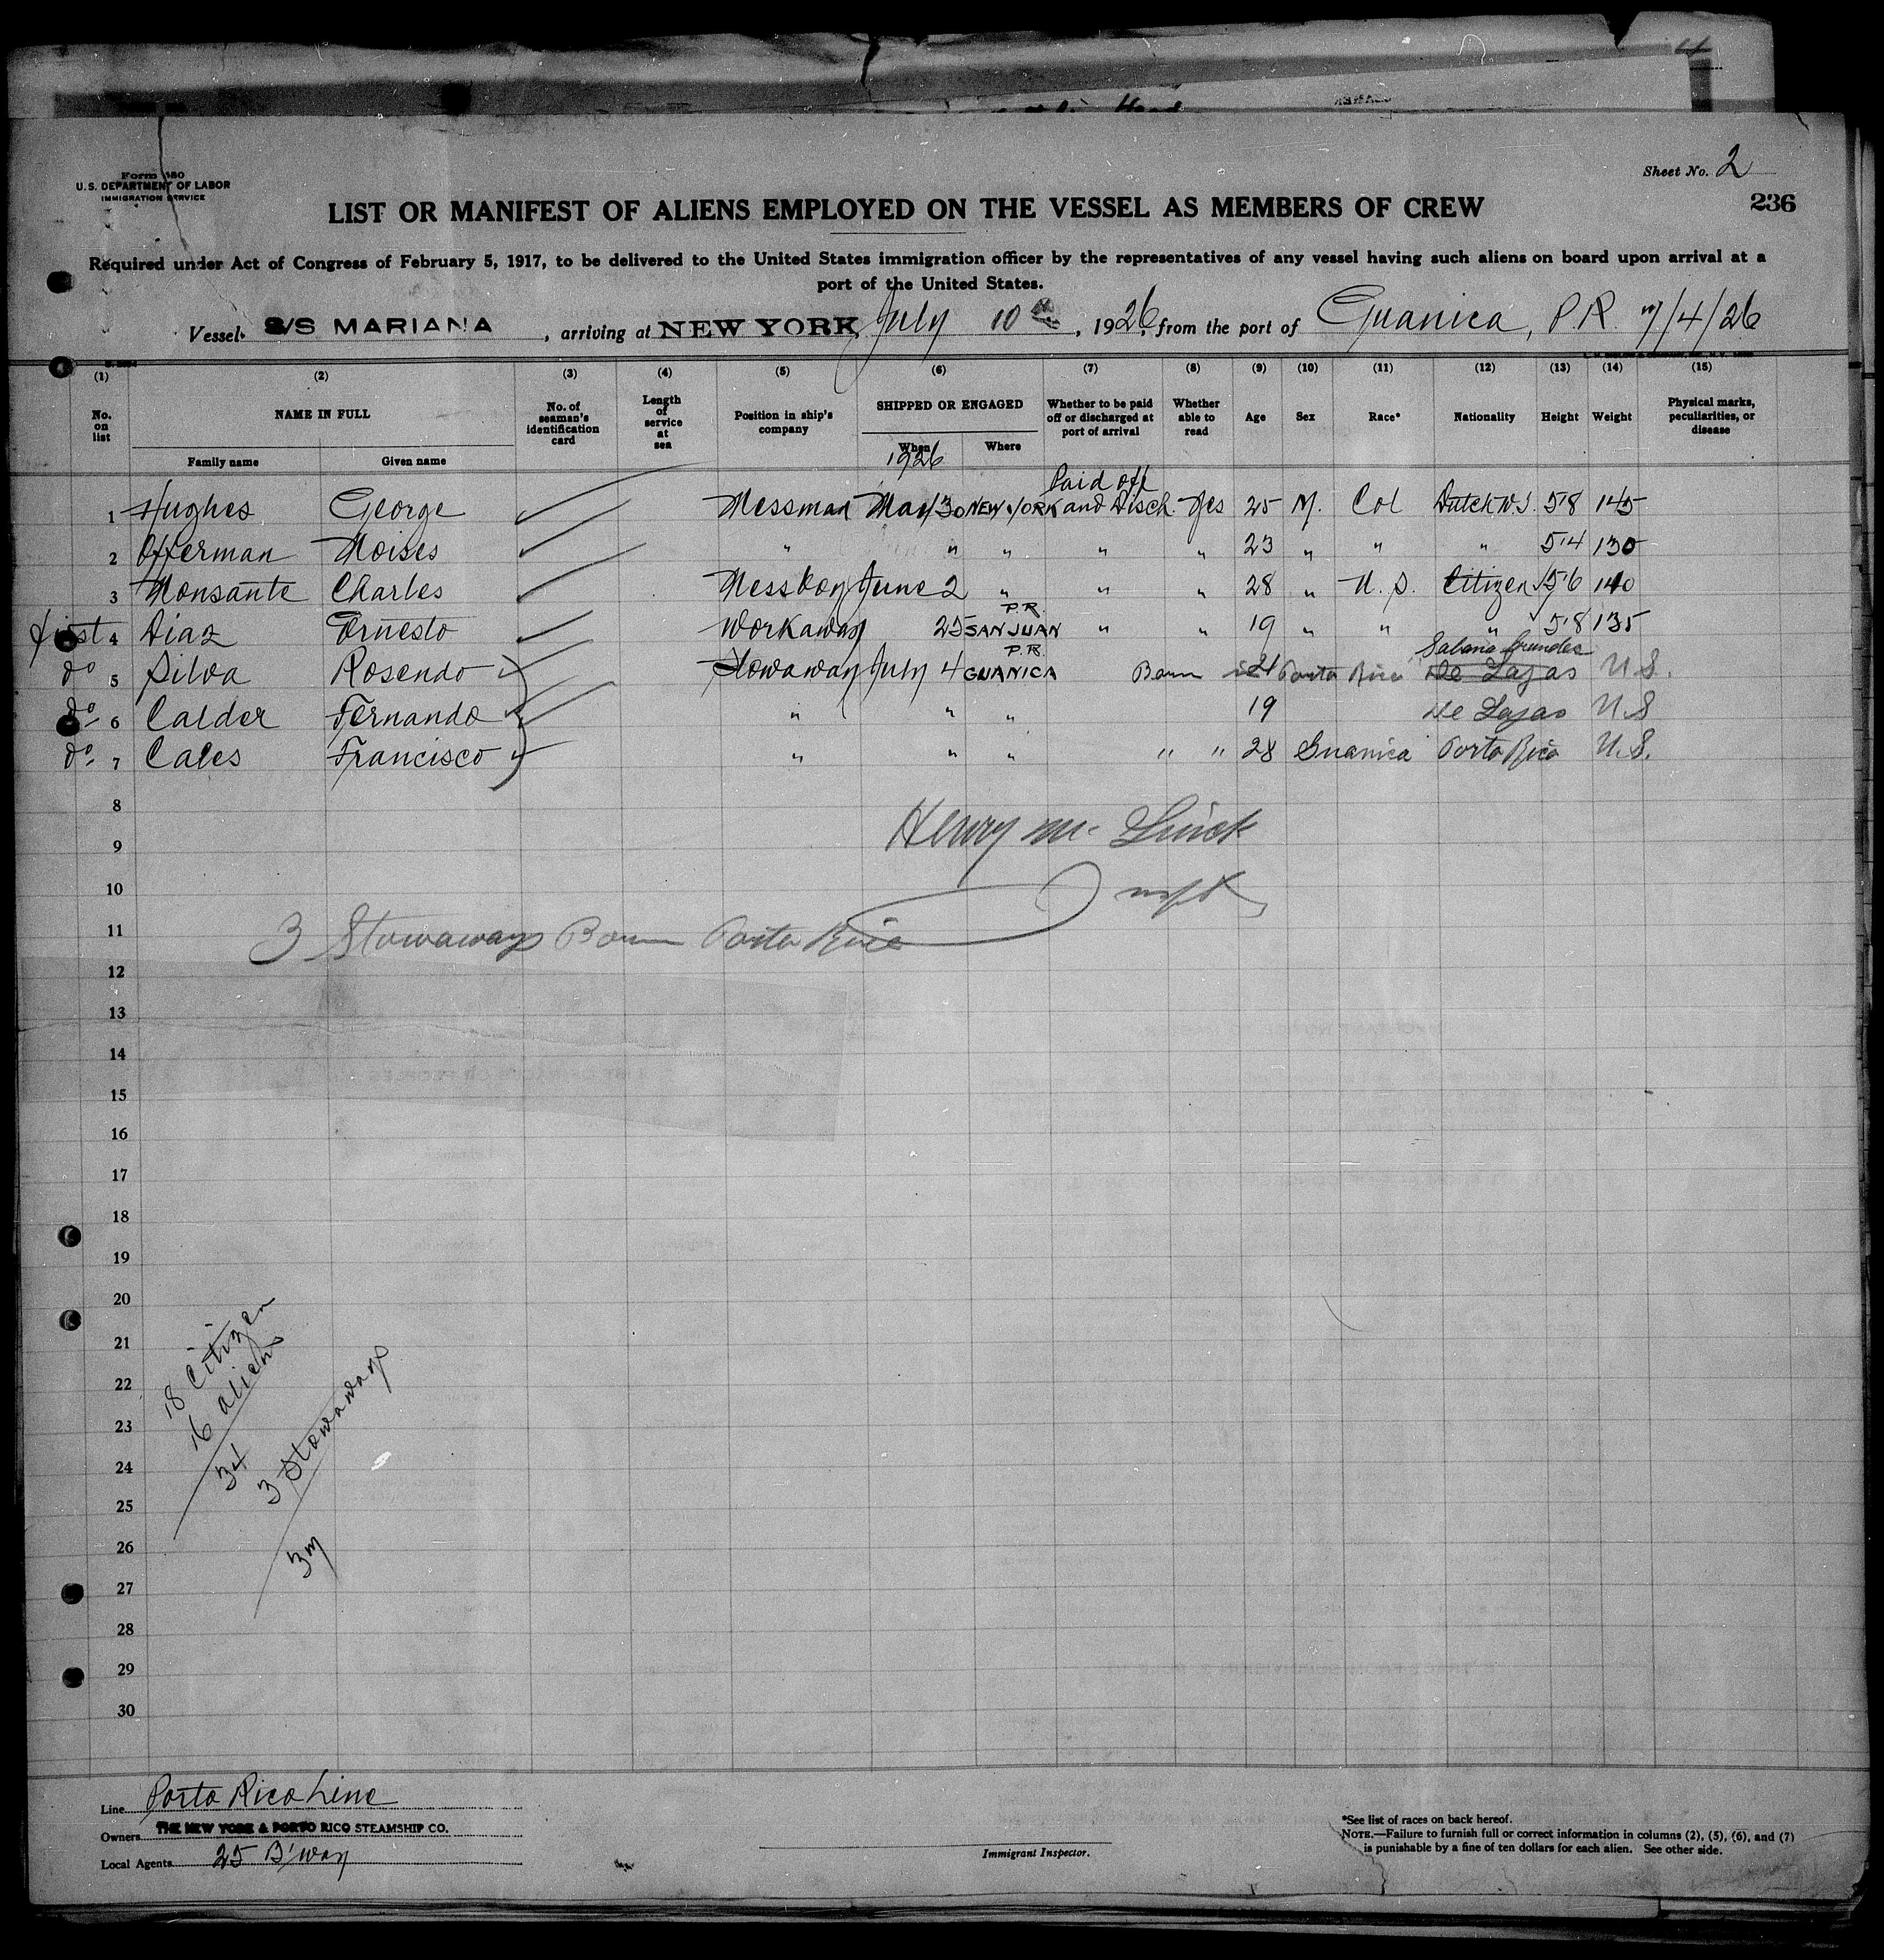 Sheet No. 2
Form 680
U.S. DEPARTMENT OF LABOR
IMMIGRATION SERVICE
236
LIST OR MANIFEST OF ALIENS EMPLOYED ON THE VESSEL AS MEMBERS OF CREW
Required under Act of Congress of February 5, 1917, to be delivered to the United States immigration officer by the representatives of any vessel having such aliens on board upon arrival at a
port of the United States.
Vessel S/S MARIANA, arriving at NEW YORK, July 10th, 1926, from the port of Guanica, P.R. 7/4/26
(1) (2) (3) (4) (5) (6) (7) (8) (9) (10) (11) (12) (13) (14) (15)
No. on list NAME IN FULL No. of seaman's identification card Length of service at sea Position in ship's company SHIPPED OR ENGAGED Whether to be paid off or discharged at port of arrival Whether able to read Age Sex Race* Nationality Height Weight Physical marks, peculiarities, or disease
Family name Given name When Where
1926
Paid off
1 Hughes George Messman May 30 NEW YORK and Disch. Yes 25 M. Col Dutch W.I. 5'8 145
2 Offerman Moises " " " " " 23 " " " 5'4 130
3 Monsante Charles Messboy June 2 " " " 28 " U.S. Citizen 5'6 140
P.R.
first 4 Diaz Ernesto Workaway 25 SAN JUAN " " 19 " " " 5'8 135
P.R. Sabana Grandes
do 5 Silva Rosendo Stowaway July 4 GUANICA Born in 21 Porto Rico De Lajas U.S.
do 6 Calder Fernando " " " 19 De Lajas U.S
do 7 Cales Francisco " " " " " 28 Guanica Porto Rico U.S.
8
Henry Mc
9
10
11 3 Stowaways Born Porto Rico
12
13
14
15
16
17
18
19
20
21
22
23
24
25
26
27
28
29
30
18 Citizen
16 aliens
34
3 Stowaways
37
Line Porto Rico Line
Owners THE NEW YORK & PORTO RICO STEAMSHIP CO.
Local Agents 25 B'way
Immigrant Inspector.
*See list of races on back hereof.
NOTE.—Failure to furnish full or correct information in columns (2), (5), (6), and (7)
is punishable by a fine of ten dollars for each alien. See other side.